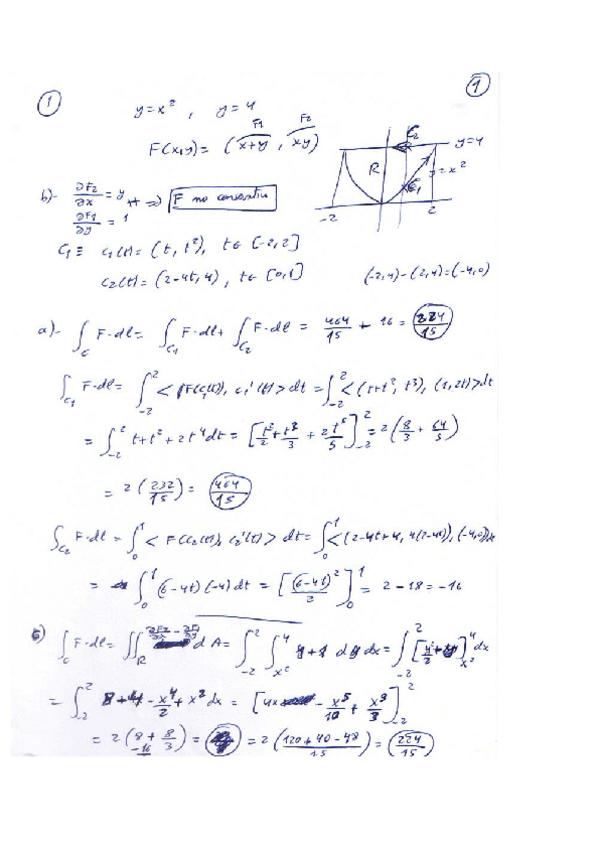 ① ①
y = x² , y = 4
F(x,y) = (x+y , xy) F1 F2
C2 y=4
R y=x²
C1
-2 2
b)- ∂F2/∂x = y
∂F1/∂y = 1 ≠ => F no conservativo
C1 ≡ c1(t) = (t, t²), t ∈ [-2,2]
c2(t) = (2-4t, 4), t ∈ [0,1] (-2,4)-(2,4)=(-4,0)
a)- ∫_C F·dl = ∫_C1 F·dl + ∫_C2 F·dl = 464/15 - 16 = 224/15
∫_C1 F·dl = ∫_-2^2 <F(c1(t)), c1'(t)> dt = ∫_-2^2 <(t+t², t³), (1,2t)> dt
= ∫_-2^2 t+t²+2t⁴ dt = [t²/2 + t³/3 + 2t⁵/5]_-2^2 = 2(8/3 + 64/5)
= 2(232/15) = 464/15
∫_C2 F·dl = ∫_0^1 <F(c2(t)), c2'(t)> dt = ∫_0^1 <(2-4t+4, 4(2-4t)), (-4,0)> dt
= ∫_0^1 (6-4t)(-4) dt = [(6-4t)²/2]_0^1 = 2-18 = -16
∫_C F·dl = ∬_R ∂F2/∂x - ∂F1/∂y dA = ∫_-2^2 ∫_x²^4 y-1 dy dx = ∫_-2^2 [y²/2 - y]_x²^4 dx
= ∫_-2^2 8-4-x⁴/2+x² dx = [4x - x⁵/10 + x³/3]_-2^2
= 2(8 + 8/3 - 16/5) = = 2(120+40-48/15) = 224/15